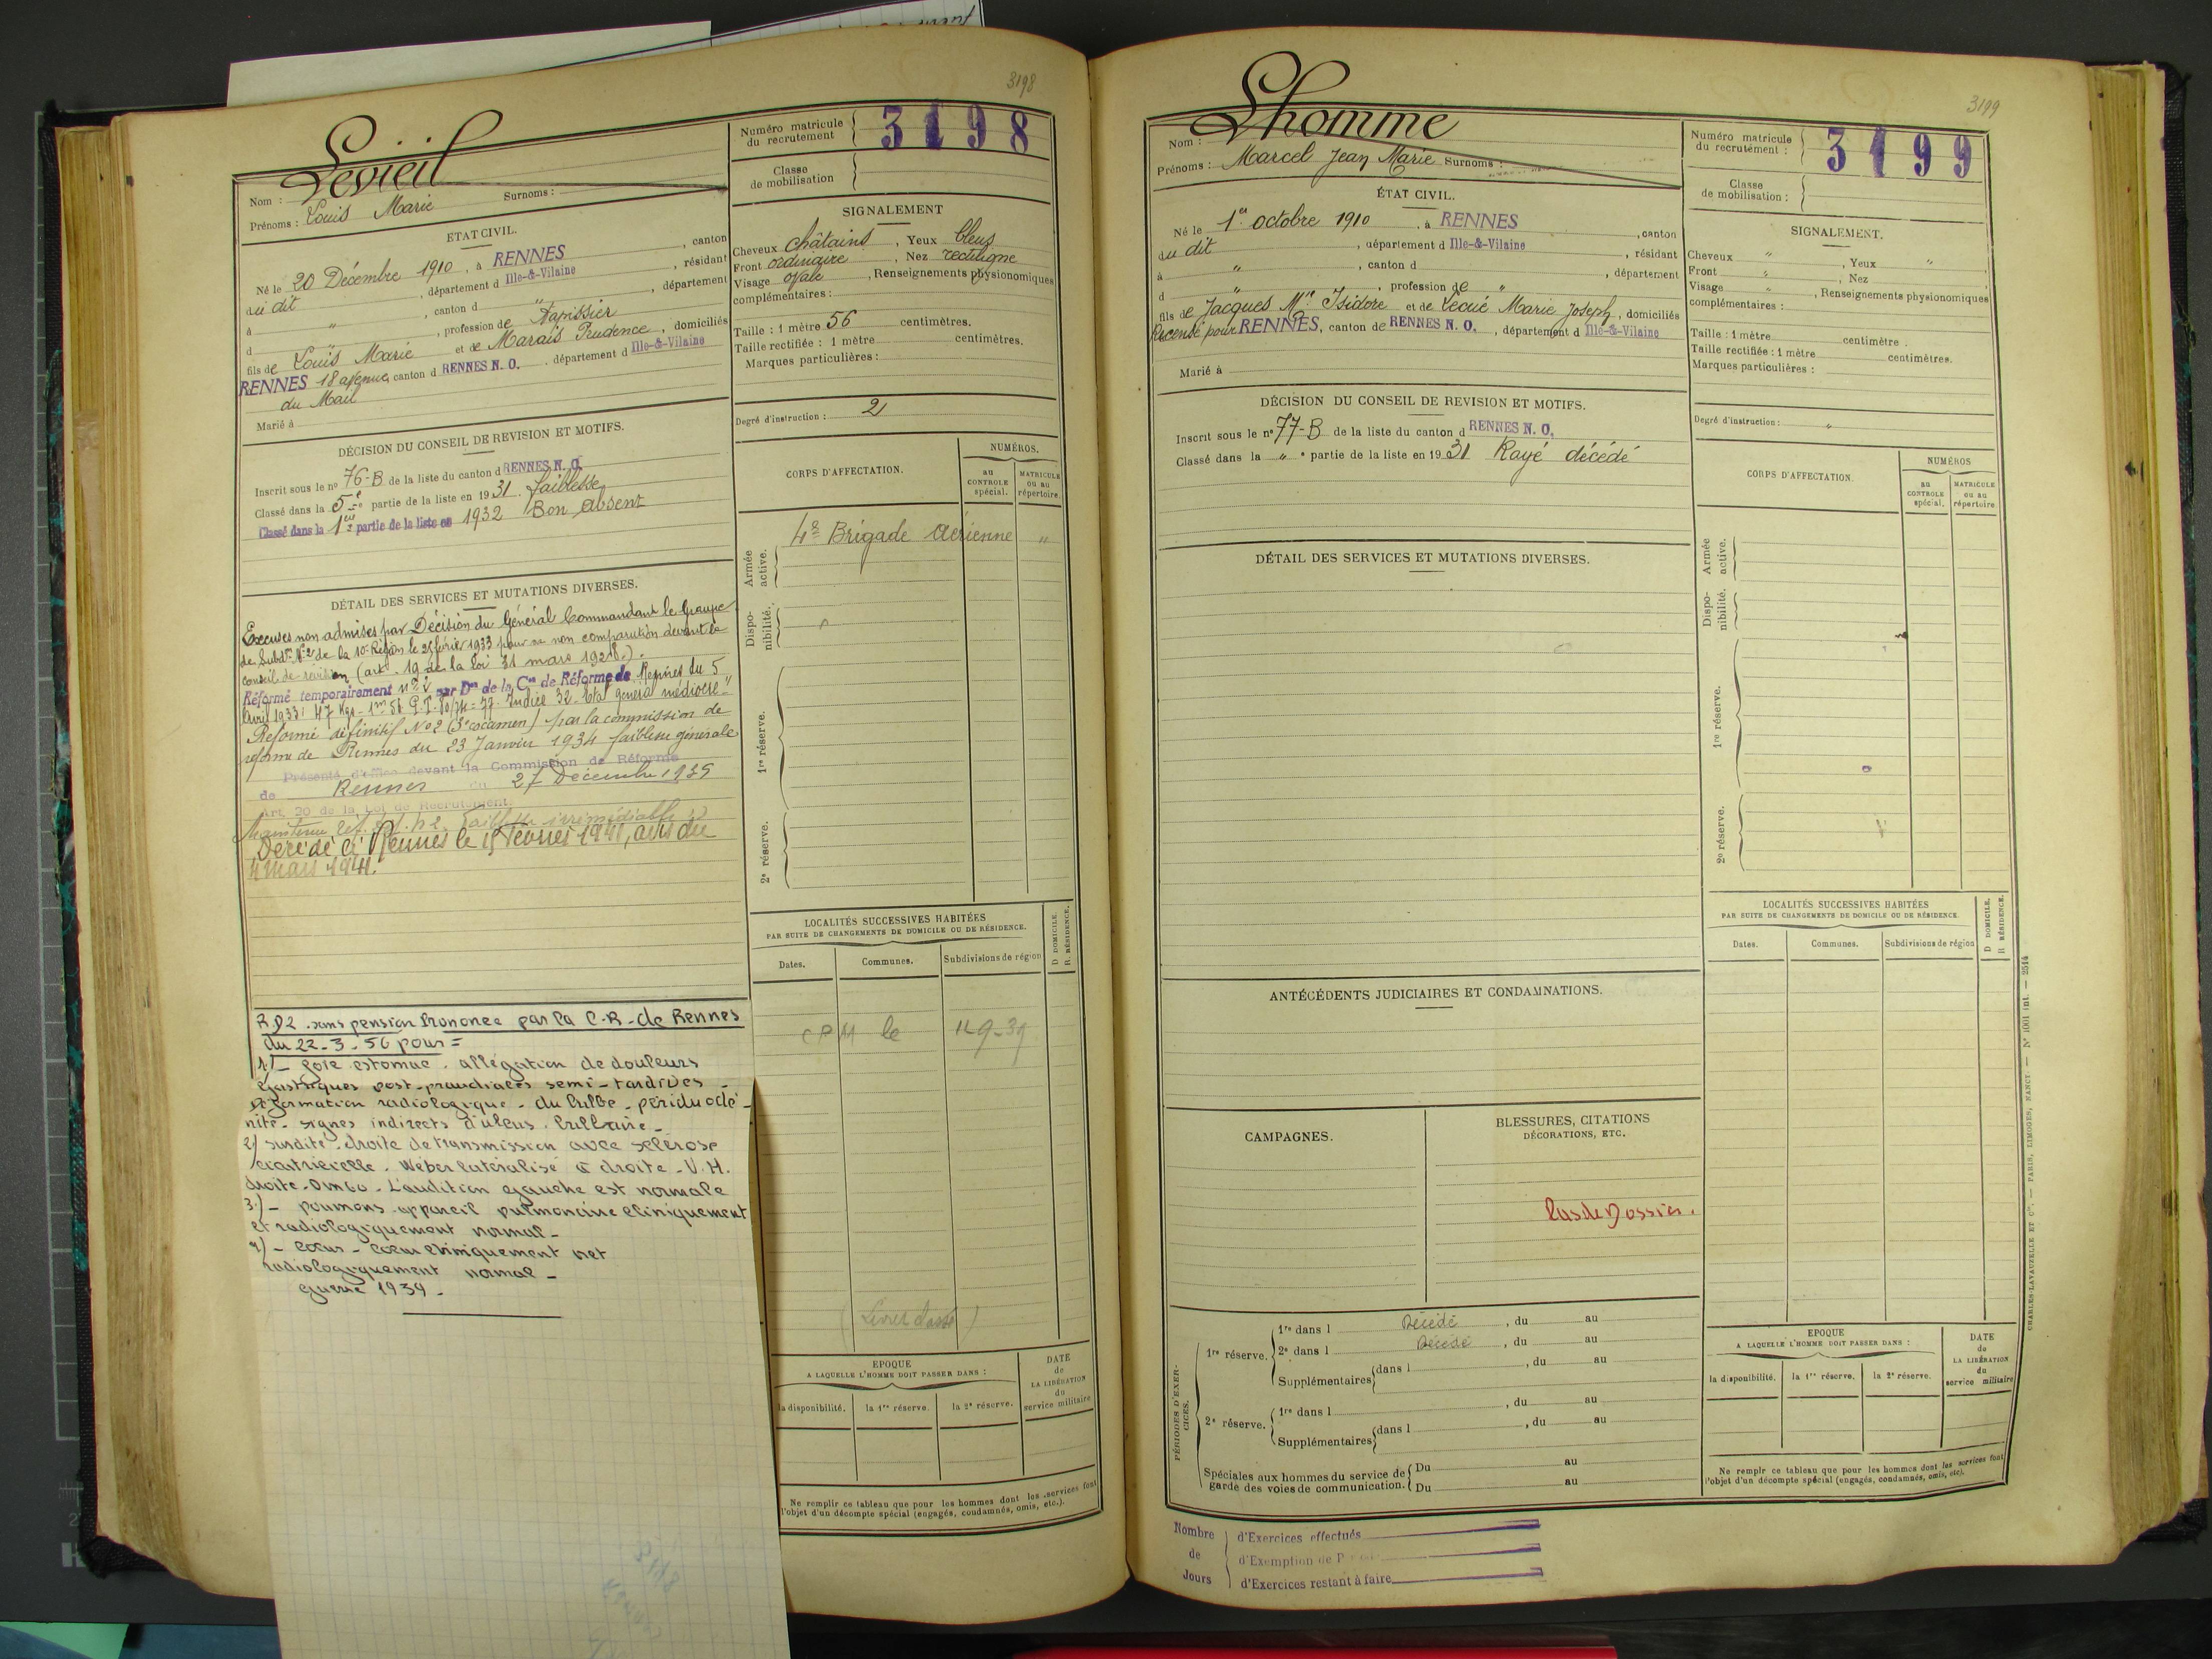 3198
Levieil
Nom :
Prénoms : Louis Marie Surnoms :
ETAT CIVIL.
Né le 20 Décembre 1910, à RENNES, canton
du dit, département d Ille-&-Vilaine, résidant
à ", canton d ", département
d ", profession de Tapissier
fils de Louis Marie et de Marais Prudence, domiciliés
RENNES 18 avenue, canton d RENNES N. O., département d Ille-&-Vilaine
du Mail
Marié à
DÉCISION DU CONSEIL DE REVISION ET MOTIFS.
Inscrit sous le nº 76-B de la liste du canton d RENNES N. O.
Classé dans la 5e partie de la liste en 1931. Faiblesse
Classé dans la 1ère partie de la liste en 1932 Bon absent
DÉTAIL DES SERVICES ET MUTATIONS DIVERSES.
Excuses non admises par Décision du Général Commandant le Groupe
de Subdons Nº2 de la 10e Région le février 1933 pour sa non comparution devant le
conseil de révision (art. 19 de la Loi 31 mars 1928.).
Réformé temporairement nº2 par Don de la Con de Réforme de Rennes du 5
Avril 1933: 47 Kgs - 1m 56 P.T. 80/74 = 77. Indice 32. Etat général médiocre "
Réformé définitif Nº2 (3e examen) par la commission de
réforme de Rennes du 23 Janvier 1934 faiblesse générale
Présenté d'office devant la Commission de Réforme
de Rennes du 27 Décembre 1939
Art. 20 de la Loi de Recrutement.
Maintenu Réf. Déf. n2. Faiblesse irrémédiable
Décédé à Rennes le 15 Février 1941, avis du
4 mars 1941.
R.D2. sans pension Prononcé par la C.R. de Rennes
du 22-3-56 pour =
1/- foie estomac. allégation de douleurs
gastriques post-prandiales semi-tardives -
déformation radiologique - du bulbe - périduodé-
nite - signes indirects d'ulcus bulbaire -
2) surdité droite de transmission avec sclérose
cicatricielle - Wéber latéralisé à droite - V.H.
droite - 0m60 - L'audition gauche est normale
3.)- poumons - appareil pulmonaire cliniquement
et radiologiquement normal -
4)- cœur - cœur cliniquement net
radiologiquement normal -
guerre 1939 -
Numéro matricule
du recrutement
3198
Classe
de mobilisation
SIGNALEMENT
Cheveux châtains, Yeux bleus
Front ordinaire, Nez rectiligne
Visage ovale, Renseignements physionomiques
complémentaires :
Taille : 1 mètre 56 centimètres.
Taille rectifiée : 1 mètre centimètres.
Marques particulières :
Degré d'instruction : 2
CORPS D'AFFECTATION.
NUMÉROS.
au CONTROLE spécial.
MATRICULE ou au répertoire.
Armée active.
4e Brigade Aérienne "
Dispo-nibilité.
1re réserve.
2e réserve.
LOCALITÉS SUCCESSIVES HABITÉES
PAR SUITE DE CHANGEMENTS DE DOMICILE OU DE RÉSIDENCE.
D DOMICILE.
R. RÉSIDENCE.
Dates. Communes. Subdivisions de région
EPOQUE
A LAQUELLE L'HOMME DOIT PASSER DANS :
la disponibilité. la 1re réserve. la 2e réserve.
DATE
de
LA LIBÉRATION
du
service militaire
Ne remplir ce tableau que pour les hommes dont les services font
l'objet d'un décompte spécial (engagés, condamnés, omis, etc.).
3199
Lhomme
Nom :
Prénoms : Marcel Jean Marie Surnoms :
ÉTAT CIVIL.
Né le 1er octobre 1910, à RENNES, canton
du dit, département d Ille-&-Vilaine, résidant
à ", canton d, département
d ", profession de "
fils de Jacques Mie Isidore et de Lecué Marie Joseph, domiciliés
Recensé pour RENNES, canton de RENNES N. O., département d Ille-&-Vilaine
Marié à
DÉCISION DU CONSEIL DE REVISION ET MOTIFS.
Inscrit sous le nº 77-B de la liste du canton d RENNES N. O.
Classé dans la " partie de la liste en 1931 Rayé décédé
DÉTAIL DES SERVICES ET MUTATIONS DIVERSES.
ANTÉCÉDENTS JUDICIAIRES ET CONDAMNATIONS.
CAMPAGNES.
BLESSURES, CITATIONS
DÉCORATIONS, ETC.
Pas de Dossier.
PÉRIODES D'EXER-CICES.
1re réserve.
1re dans l Décédé, du au
2e dans l Décédé, du au
Supplémentaires dans l, du au
2e réserve.
1re dans l, du au
Supplémentaires dans l, du au
Spéciales aux hommes du service de
garde des voies de communication.
Du au
Du au
Nombre
de
Jours
d'Exercices effectués
d'Exemption de P
d'Exercices restant à faire
Numéro matricule
du recrutement :
3199
Classe
de mobilisation :
SIGNALEMENT.
Cheveux ", Yeux "
Front ", Nez
Visage ", Renseignements physionomiques
complémentaires :
Taille : 1 mètre centimètre .
Taille rectifiée : 1 mètre centimètres.
Marques particulières :
Degré d'instruction : "
CORPS D'AFFECTATION.
NUMÉROS
au CONTROLE spécial.
MATRICULE ou au répertoire
Armée active.
Dispo-nibilité.
1re réserve.
2e réserve.
LOCALITÉS SUCCESSIVES HABITÉES
PAR SUITE DE CHANGEMENTS DE DOMICILE OU DE RÉSIDENCE
D DOMICILE.
R RÉSIDENCE.
Dates. Communes. Subdivisions de région
EPOQUE
A LAQUELLE L'HOMME DOIT PASSER DANS :
la disponibilité. la 1re réserve. la 2e réserve.
DATE
de
LA LIBÉRATION
du
service militaire
Ne remplir ce tableau que pour les hommes dont les services font
l'objet d'un décompte spécial (engagés, condamnés, omis, etc).
CHARLES-LAVAUZELLE ET Cie. — PARIS, LIMOGES, NANCY — Nº 1001 int. — 2514